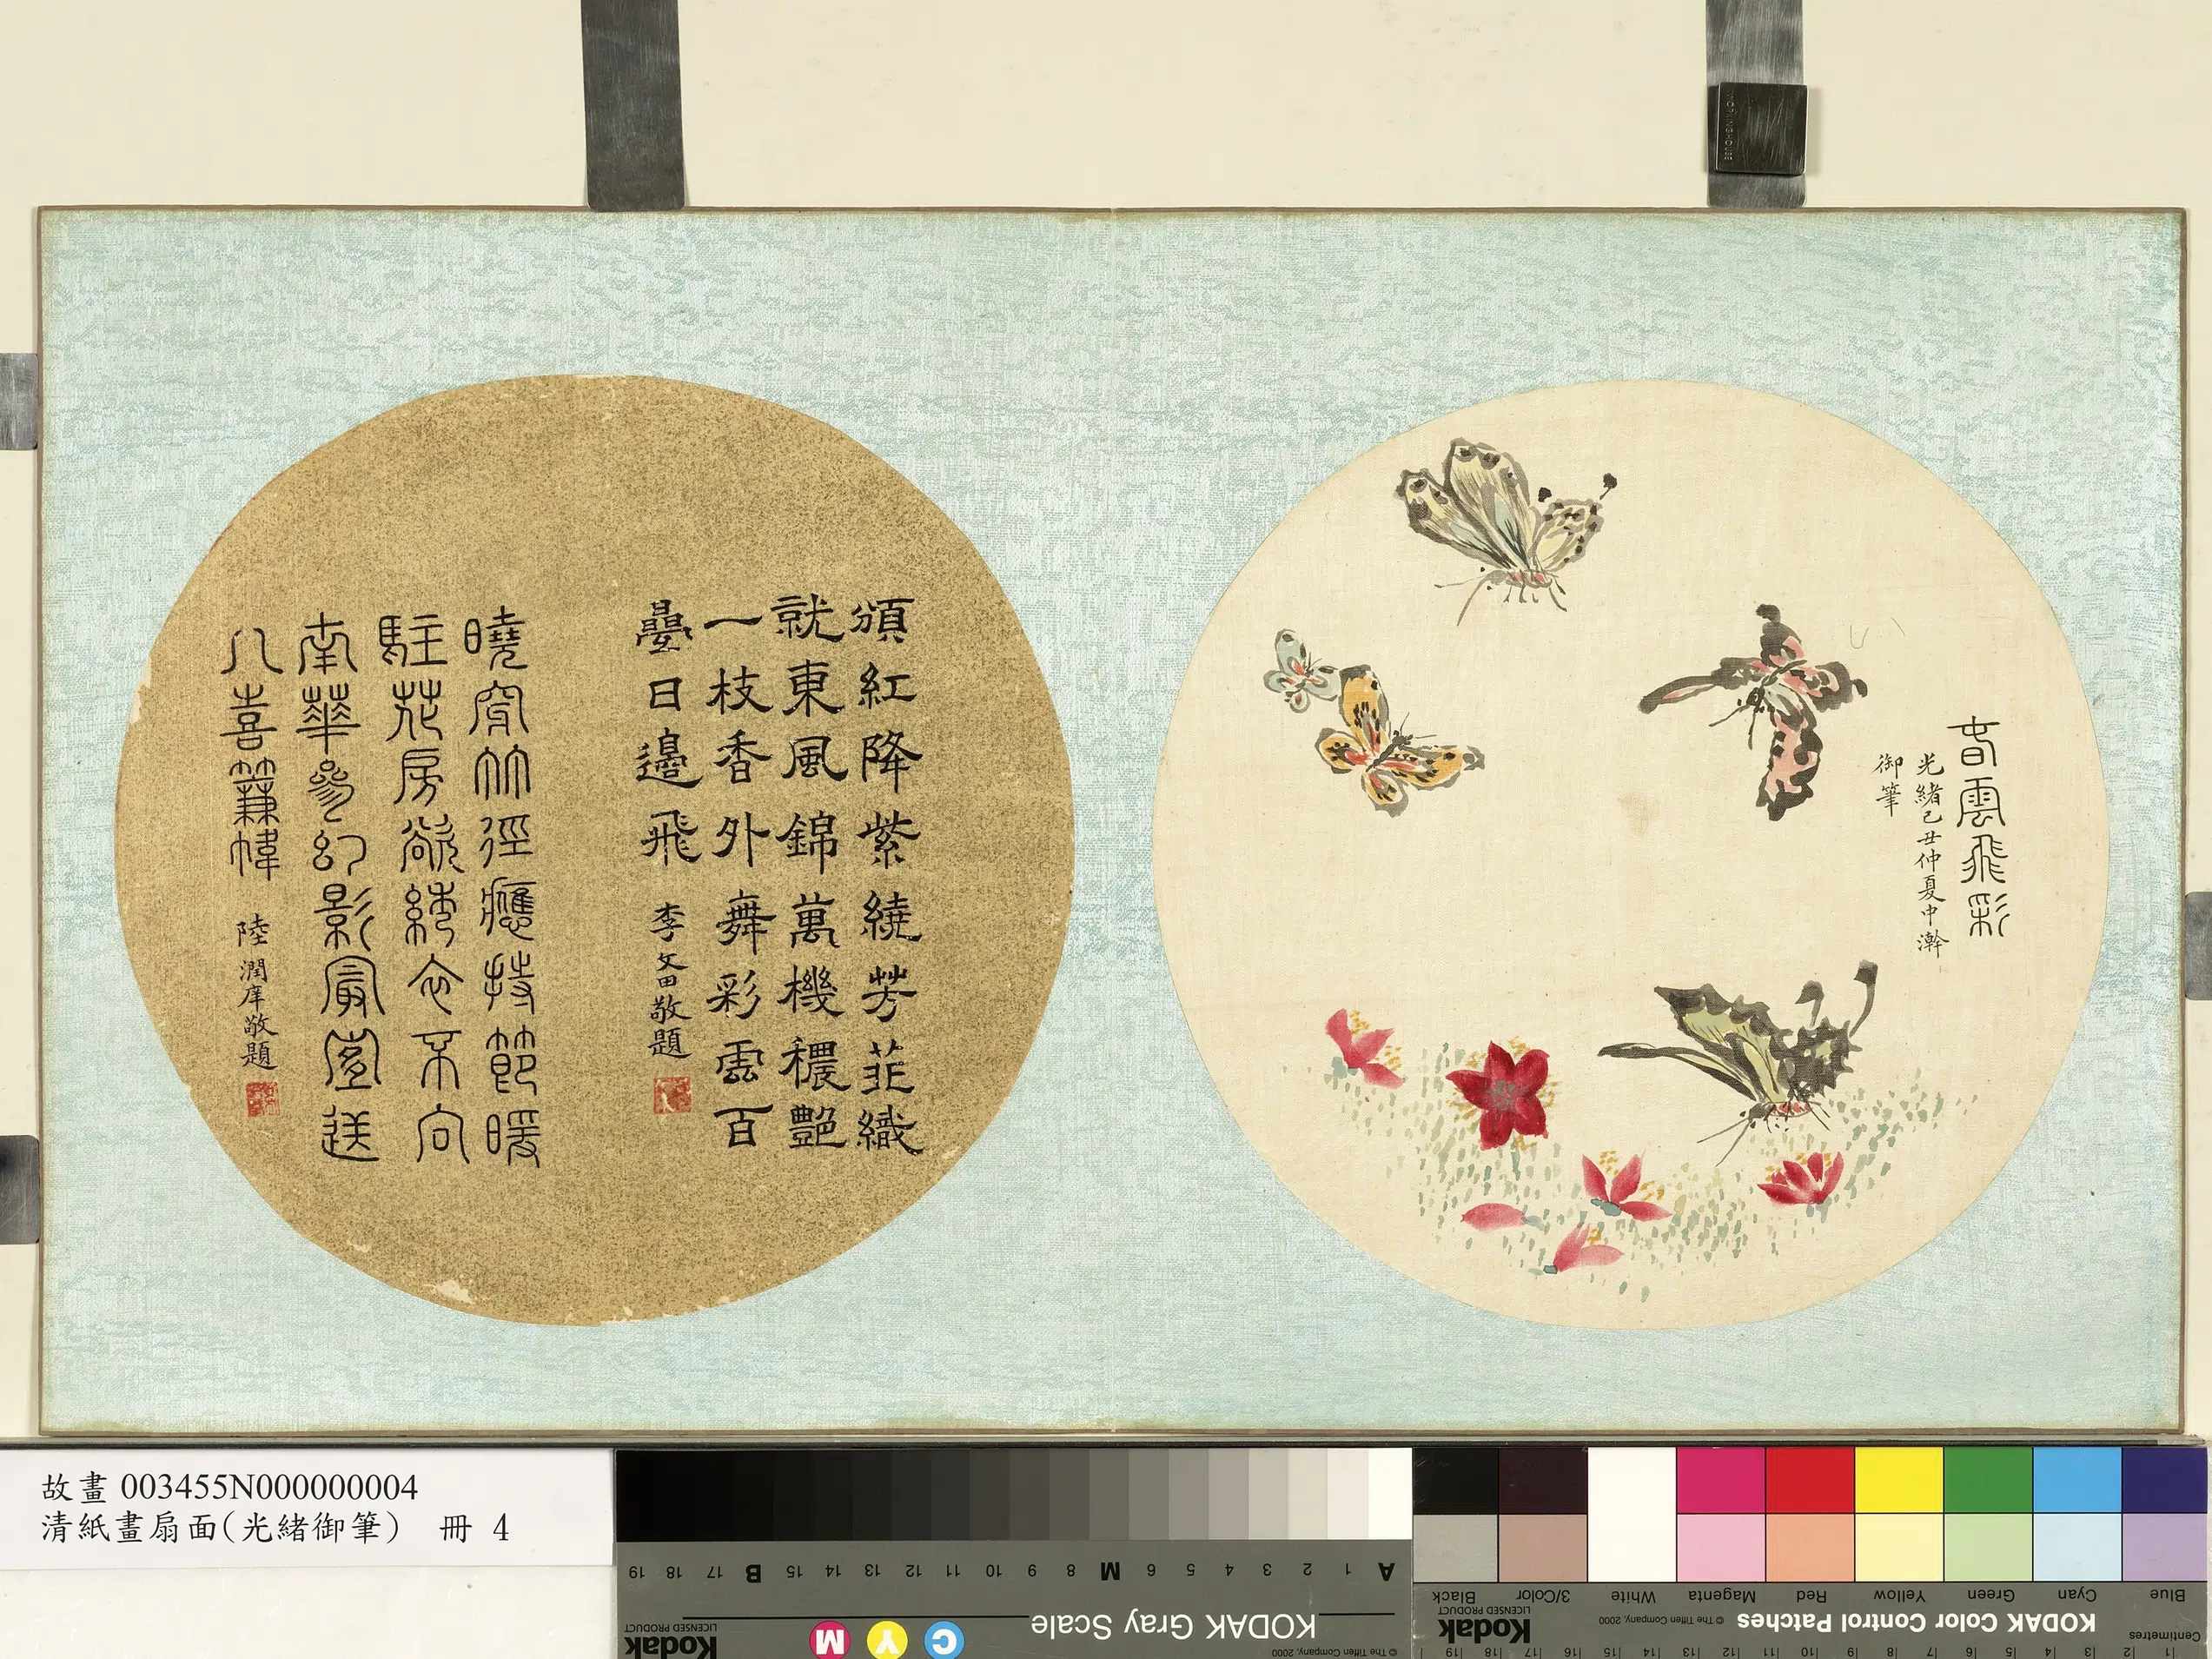 旾雲飛彩
光緒己丑仲夏中澣
御筆
頒紅降紫繞芳菲織
就東風錦萬機穠艷
一枝香外舞彩雲百
疊日邊飛 李文田敬題
曉穿竹徑應持節暖
駐花房欲綉衣不向
南華參幻影最宜送
入喜簾幃 陸潤庠敬題
故畫 003455N000000004
清紙畫扇面(光緒御筆) 冊 4
A 1 2 3 4 5 6 M 8 9 10 11 12 13 14 15 B 17 18 19
KODAK Gray Scale
© The Tiffen Company, 2000
Kodak
LICENSED PRODUCT
C Y M
Blue Cyan Green Yellow Red Magenta White 3/Color Black
KODAK Color Control Patches
© The Tiffen Company, 2000
Kodak
LICENSED PRODUCT
Centimetres
1 2 3 4 5 6 7 8 9 10 11 12 13 14 15 16 17 18 19